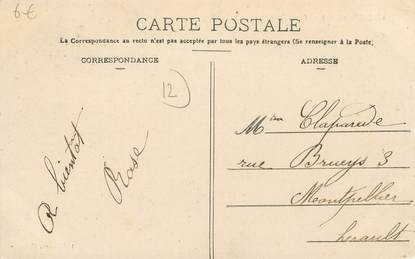 6 €
CARTE POSTALE
La Correspondance au recto n'est pas acceptée par tous les pays étrangers (Se renseigner à la Poste)
CORRESPONDANCE
ADRESSE
12
A bientôt
Rose
Claparède
rue Brueys 3
Montpellier
herault